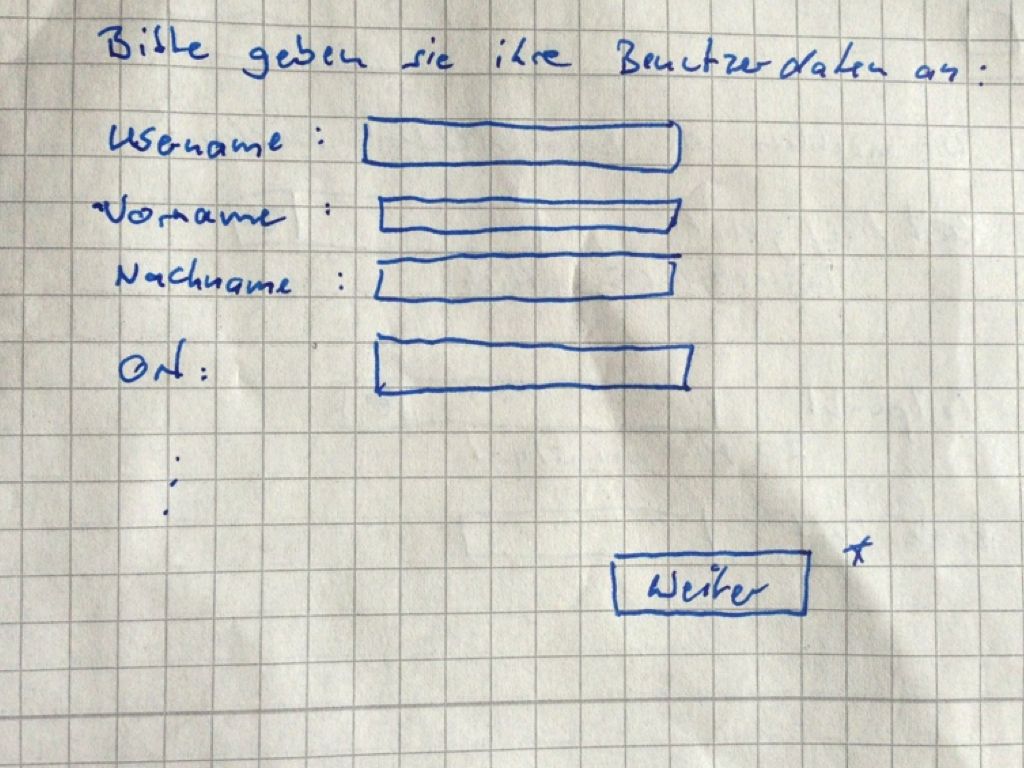 Bitte geben sie ihre Benutzerdaten an:
Username :
Vorname :
Nachname :
ON:
⋮
Weiter *